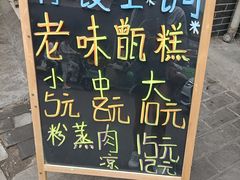 老味甑糕
小 中 大
5元 8元 10元
粉蒸肉 15元
凉 12元